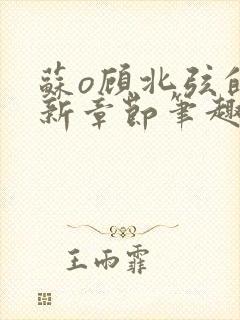 蘇o顾北弦的
新章節筆趣
王雨霏